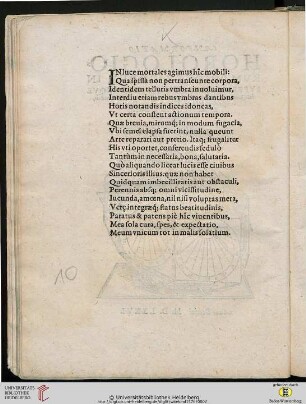 IN luce mortales agimus hîc mobili:
Qua spissa non pertranseunte corpora,
Identidem telluris vmbra inuoluimur,
Interdiu etiam rebus vmbras dantibus
Horis notandis indices adoneas,
Vt certa constent actionum tempora.
Quæ breuia, mirumq; in modum fugacia,
Vbi semel elapsa fuerint, nulla queunt
Arte reparari aut pretio. Itaq; frugaliter
His vti oportet, conferendis sedulò
Tantùm in necessaria, bona, salutaria.
Quò aliquando liceat lucis esse ciuibus
Sincerioris illius. quæ non habet
Quidquam imbecillitatis aut obstaculi,
Perennis absq; omni vicissitudine,
Iucunda, amœna, nil nisi voluptas mera,
Veræ integræq; status beatitudinis,
Paratus & patens piè hîc viuentibus,
Mea sola cura, spes, & expectatio,
Meum vnicum tot in malis solatium.
10
UNIVERSITÄTS-
BIBLIOTHEK
HEIDELBERG
© Universitätsbibliothek Heidelberg
Baden-Württemberg